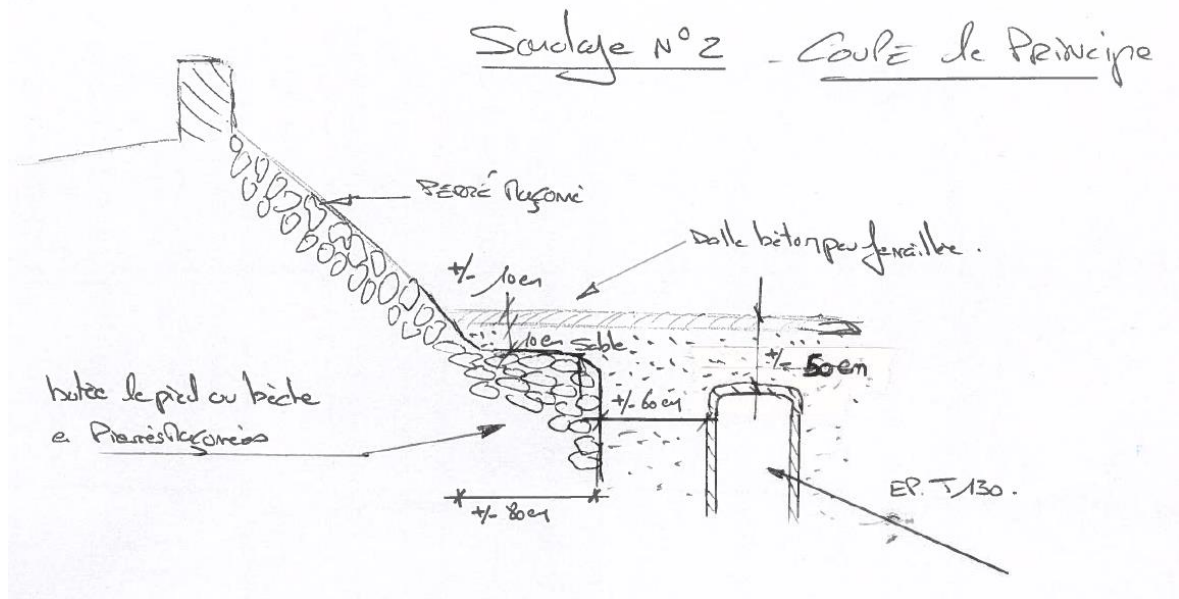 Sondage N°2 - Coupe de Principe
PERRÉ Maçonné
Dalle béton peu ferraillée.
+/- 10 cm
10 cm sable
+/- 50 cm
+/- 60 cm
butée de pied ou bêche
en Pierres Maçonnées
+/- 80 cm
EP. T130.